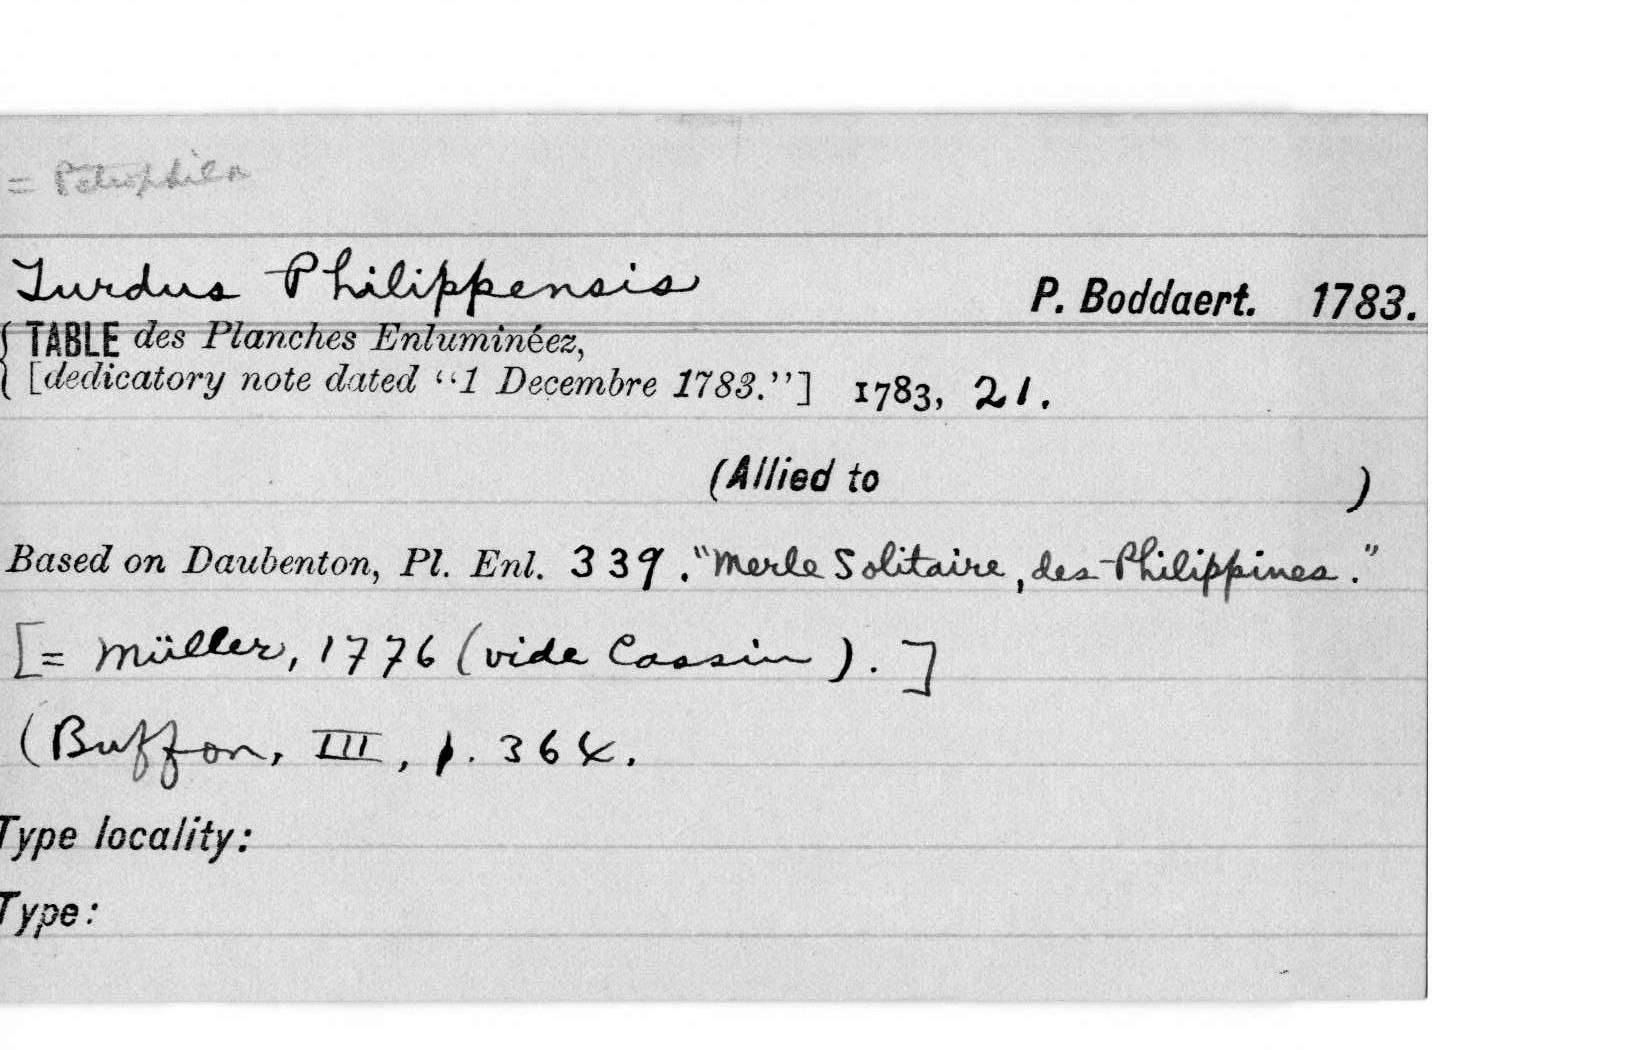 = Petrophila
Turdus Philippensis P. Boddaert. 1783.
TABLE des Planches Enluminéez,
[dedicatory note dated “1 Decembre 1783.”] 1783, 21.
(Allied to )
Based on Daubenton, Pl. Enl. 339. "Merle Solitaire, des Philippines."
[= Müller, 1776 (vide Cassin).]
(Buffon, III, p. 364.
Type locality:
Type: